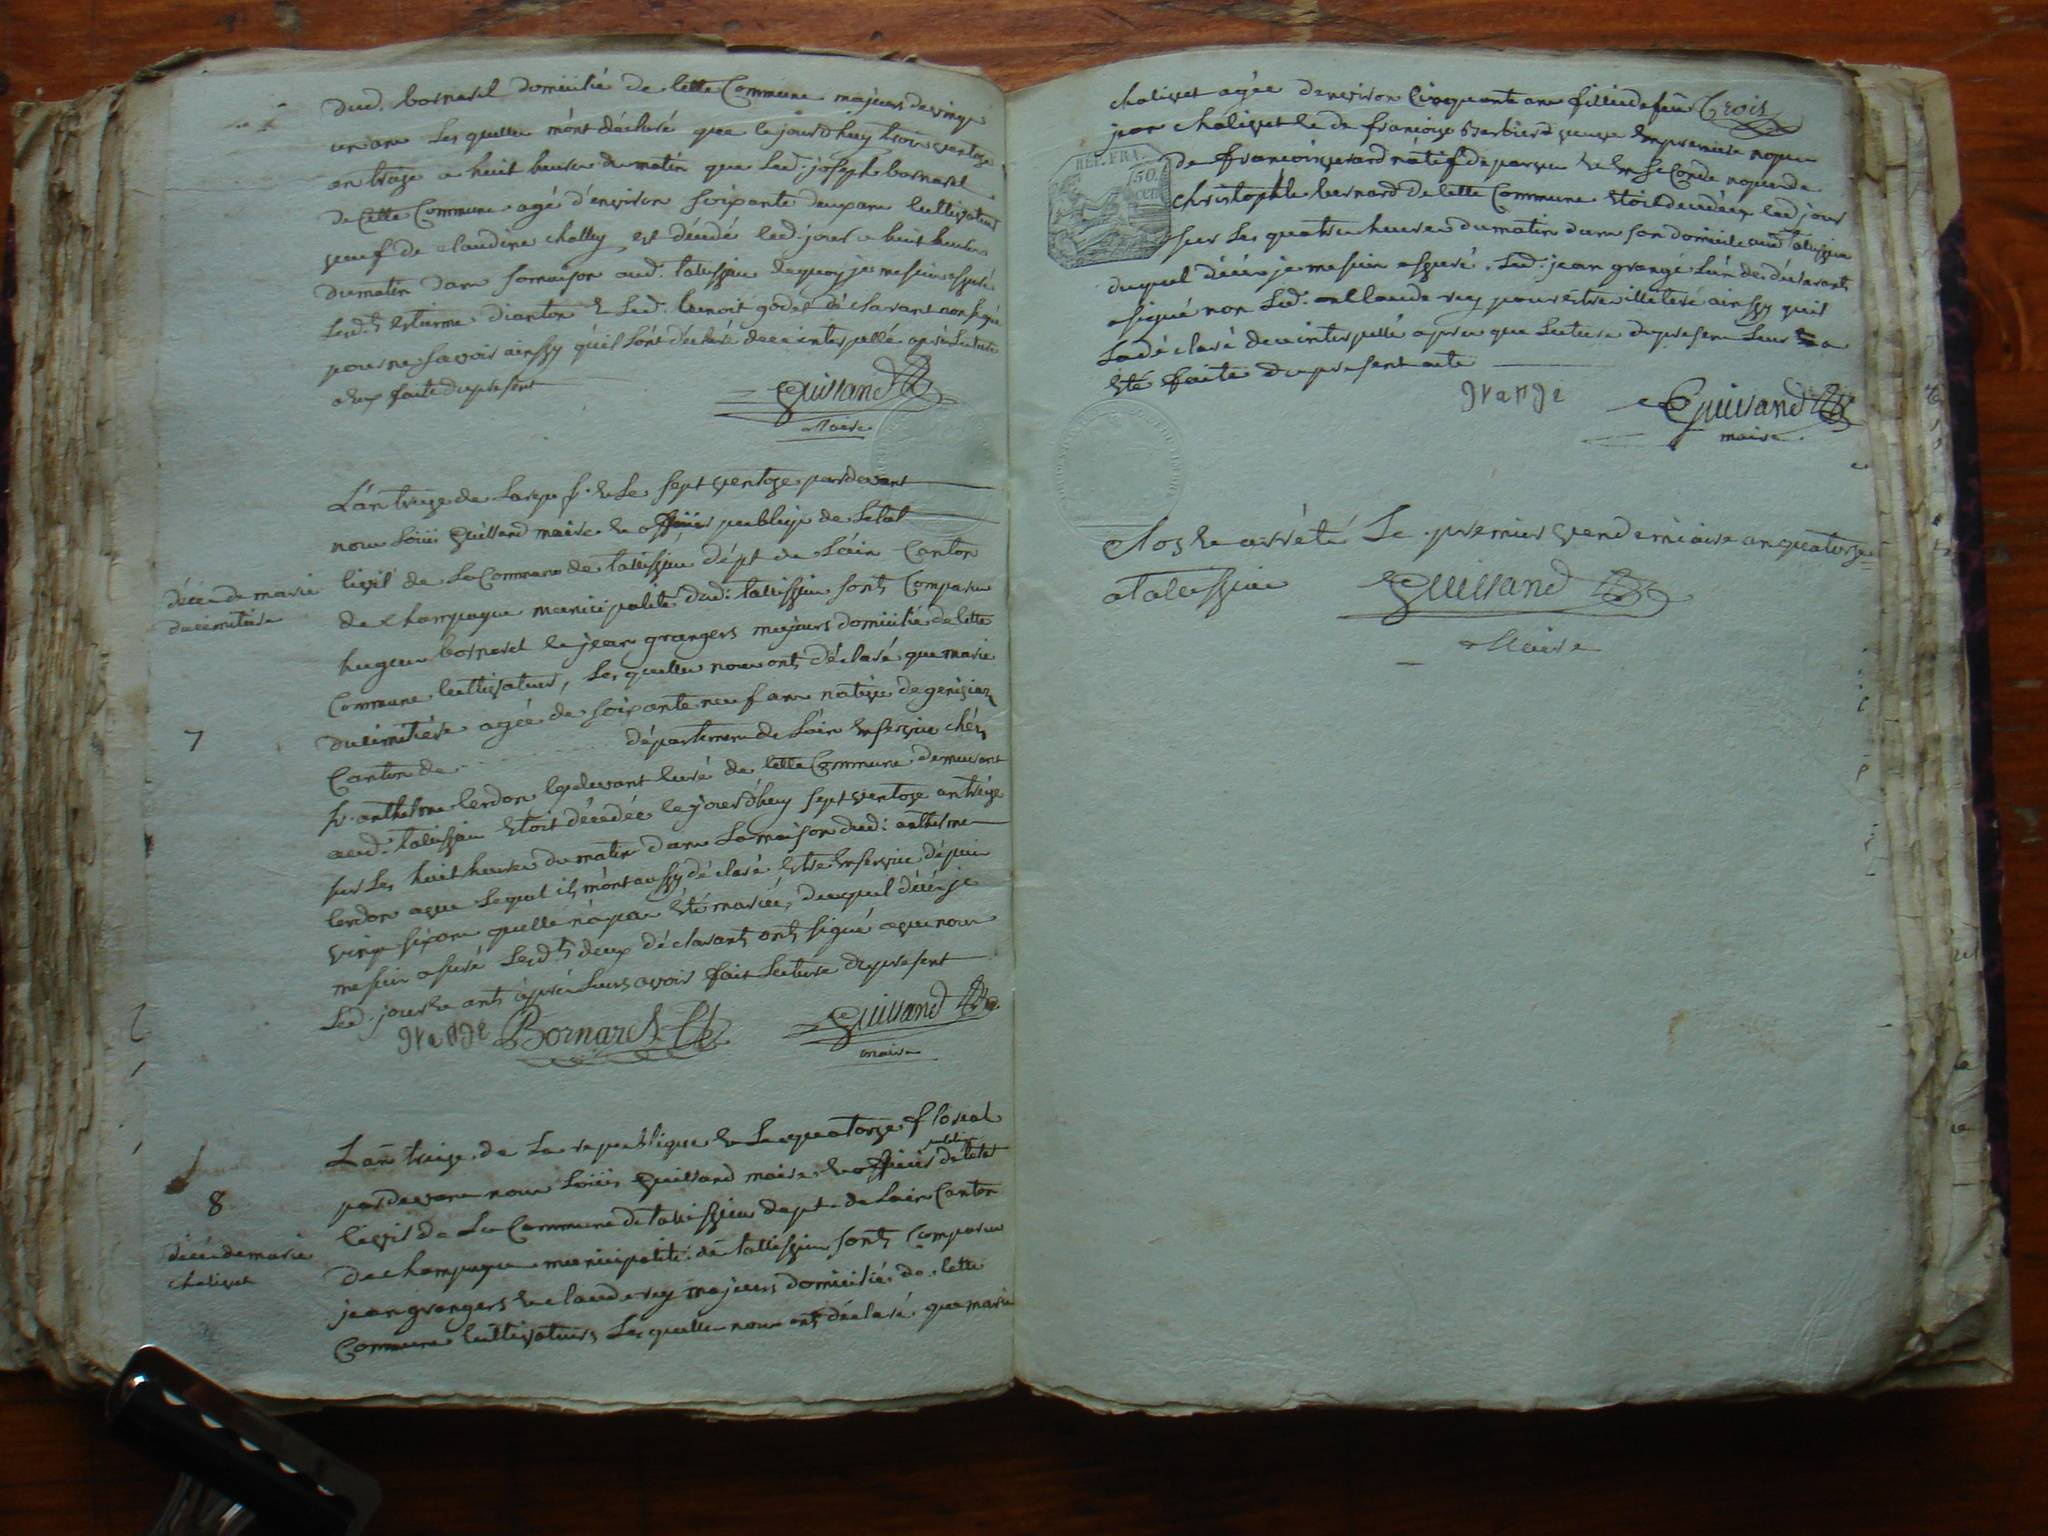 dud. bornarel domicilié de cette Commune majeurs de vingt
un ans Les quelles m'ont déclaré que ce jourdhuy trois ventoze
an treize a huit heures du matin que Led. joseph bornarel
de Cette Commune agé d'environ soixante deux ans cultivateur
veuf de claudine challey est décédé led. jour a huit heures
du matin dans sa maison aud. talissieu de quoy je me suis assuré
Led.t estienne dianton & Led. benoit godet déclarant non signé
pour ne savoir ainssy quil l'ont déclaré de ce interpellé après Lecture
a eux faite du present
Guilland
Maire
L'an treize de La rep. f. & Le sept ventoze pardevant
nous Loüis Guilland maire & officier publiq de Letat
civil de La Commune de talissieu dépt de L'ain Canton
de champagne municipalité dud. talissieu sont Comparus
hugeu bornarel & jean grangers majeurs domicilié de cette
Commune cultivateurs, Les quelles nous ont déclaré que marie
ducimetière agée de soixante neuf ans native de genissiaz
Canton de département de L'ain en service chéz
sr. anthelme cerdon cydevant curé de cette Commune demeurant
aud. talissieu étoit décédée ce jourdhuy sept ventoze an treize
sur Les huit heures du matin dans La maison dud. anthelme
cerdon avec Lequel ils m'ont aussy déclaré estre en service dépuis
vingt six ans quelle n'a pas été mariée, duquel décès je
me suis assuré Lesd.ts deux déclarants ont signé avec nous
Led. jour & an après Leurs avoir fait Lecture du present
grange Bornarel Guilland
maire
décès de marie
ducimetière
7
L'an treize de La republique & Le quatorze floreal
pardevant nous Loüis Guilland maire & officier publique de letat
civil de La Commune de talissieu dept. de Lain Canton
de champagne municipalité de talissieu sont Comparus
jean grangers & claude rey majeurs domicilié de cette
Commune cultivateurs Les quelles nous ont déclaré que marie
8
décès de marie
chalivet
Trois
REP. FRA.
50
cen
chalivet agée d'environ Cinquante ans fillie de feu
jean chalivet & de françoise barbier veuve en premiere nopces
de françois girard natif de parves & en seConde nopces de
christophle bernard de cette Commune étoit décédée led. jour
sur Les quatre heures du matin dans son domicile aud. talissieu
duquel décès je me suis assuré. Led. jean grange L'un des déclarants
a signé non Led. claude rey pour être illeteré ainssy quil
La déclaré de ce interpellé après que Lecture du present Leur a
été faite du present acte
grange Guilland
maire
Clos & arrété Le premier vendemiaire an quatorze
a talissieu Guilland
Maire